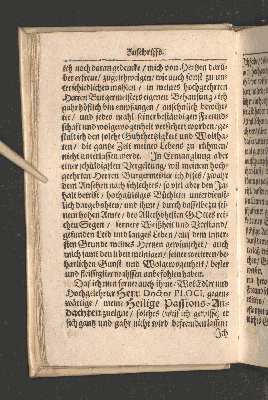 Zuschrifft.
ich noch daran gedencke / mich von Hertzen darü-
ber erfreue / zugeschwiegen / wie auch sonst zu un-
terschiedlichen mahlen / in meines hochgeehrten
Herren Burgermeisters eigenen Behausung / ich
gahr höflich bin empfangen / ansehnlich bewirth-
et / und jedes mahl seiner beständigen Freund-
schaft und wolgewogenheit versichert worden; ge-
stalt ich den solche Guhthertzigkeit und Woltha-
ten / die gantz Zeit meines Lebens zu rühmen /
nicht unterlassen werde. In Ermangelung aber
einer schüldigsten Vergeltung / wil meinem hoch-
geehrten Herren Burgermeister ich dises / zwahr
dem Ansehen nach schlechtes / so viel aber den In-
halt betrift / hochgültiges Büchlein unterdienst-
lich dargebohten / und ihme / durch dasselbe zu sei-
nem hohen Amte / des Allerhöhesten GOttes rei-
chen Segen / fernere Weißheit und Verstand /
gesunden Leib und langes Leben / aus dem inner-
sten Grunde meines Hertzen gewünschet / auch
mich samt den über meinigen / seiner weiteren be-
harlichen Gunst und Wolgewogenheit / bester
und fleissigster mahssen anbefohlen haben.
Daß ich nun ferner auch ihme / WolEdler und
Hochgelehrter Herr Doctor PLOCI, gegen-
wärtige / meine Heilige Passions-An-
dachten zueigne / solches (weiß ich gewisse) er
sich gantz und gahr nicht wird befremden lassen
Ich